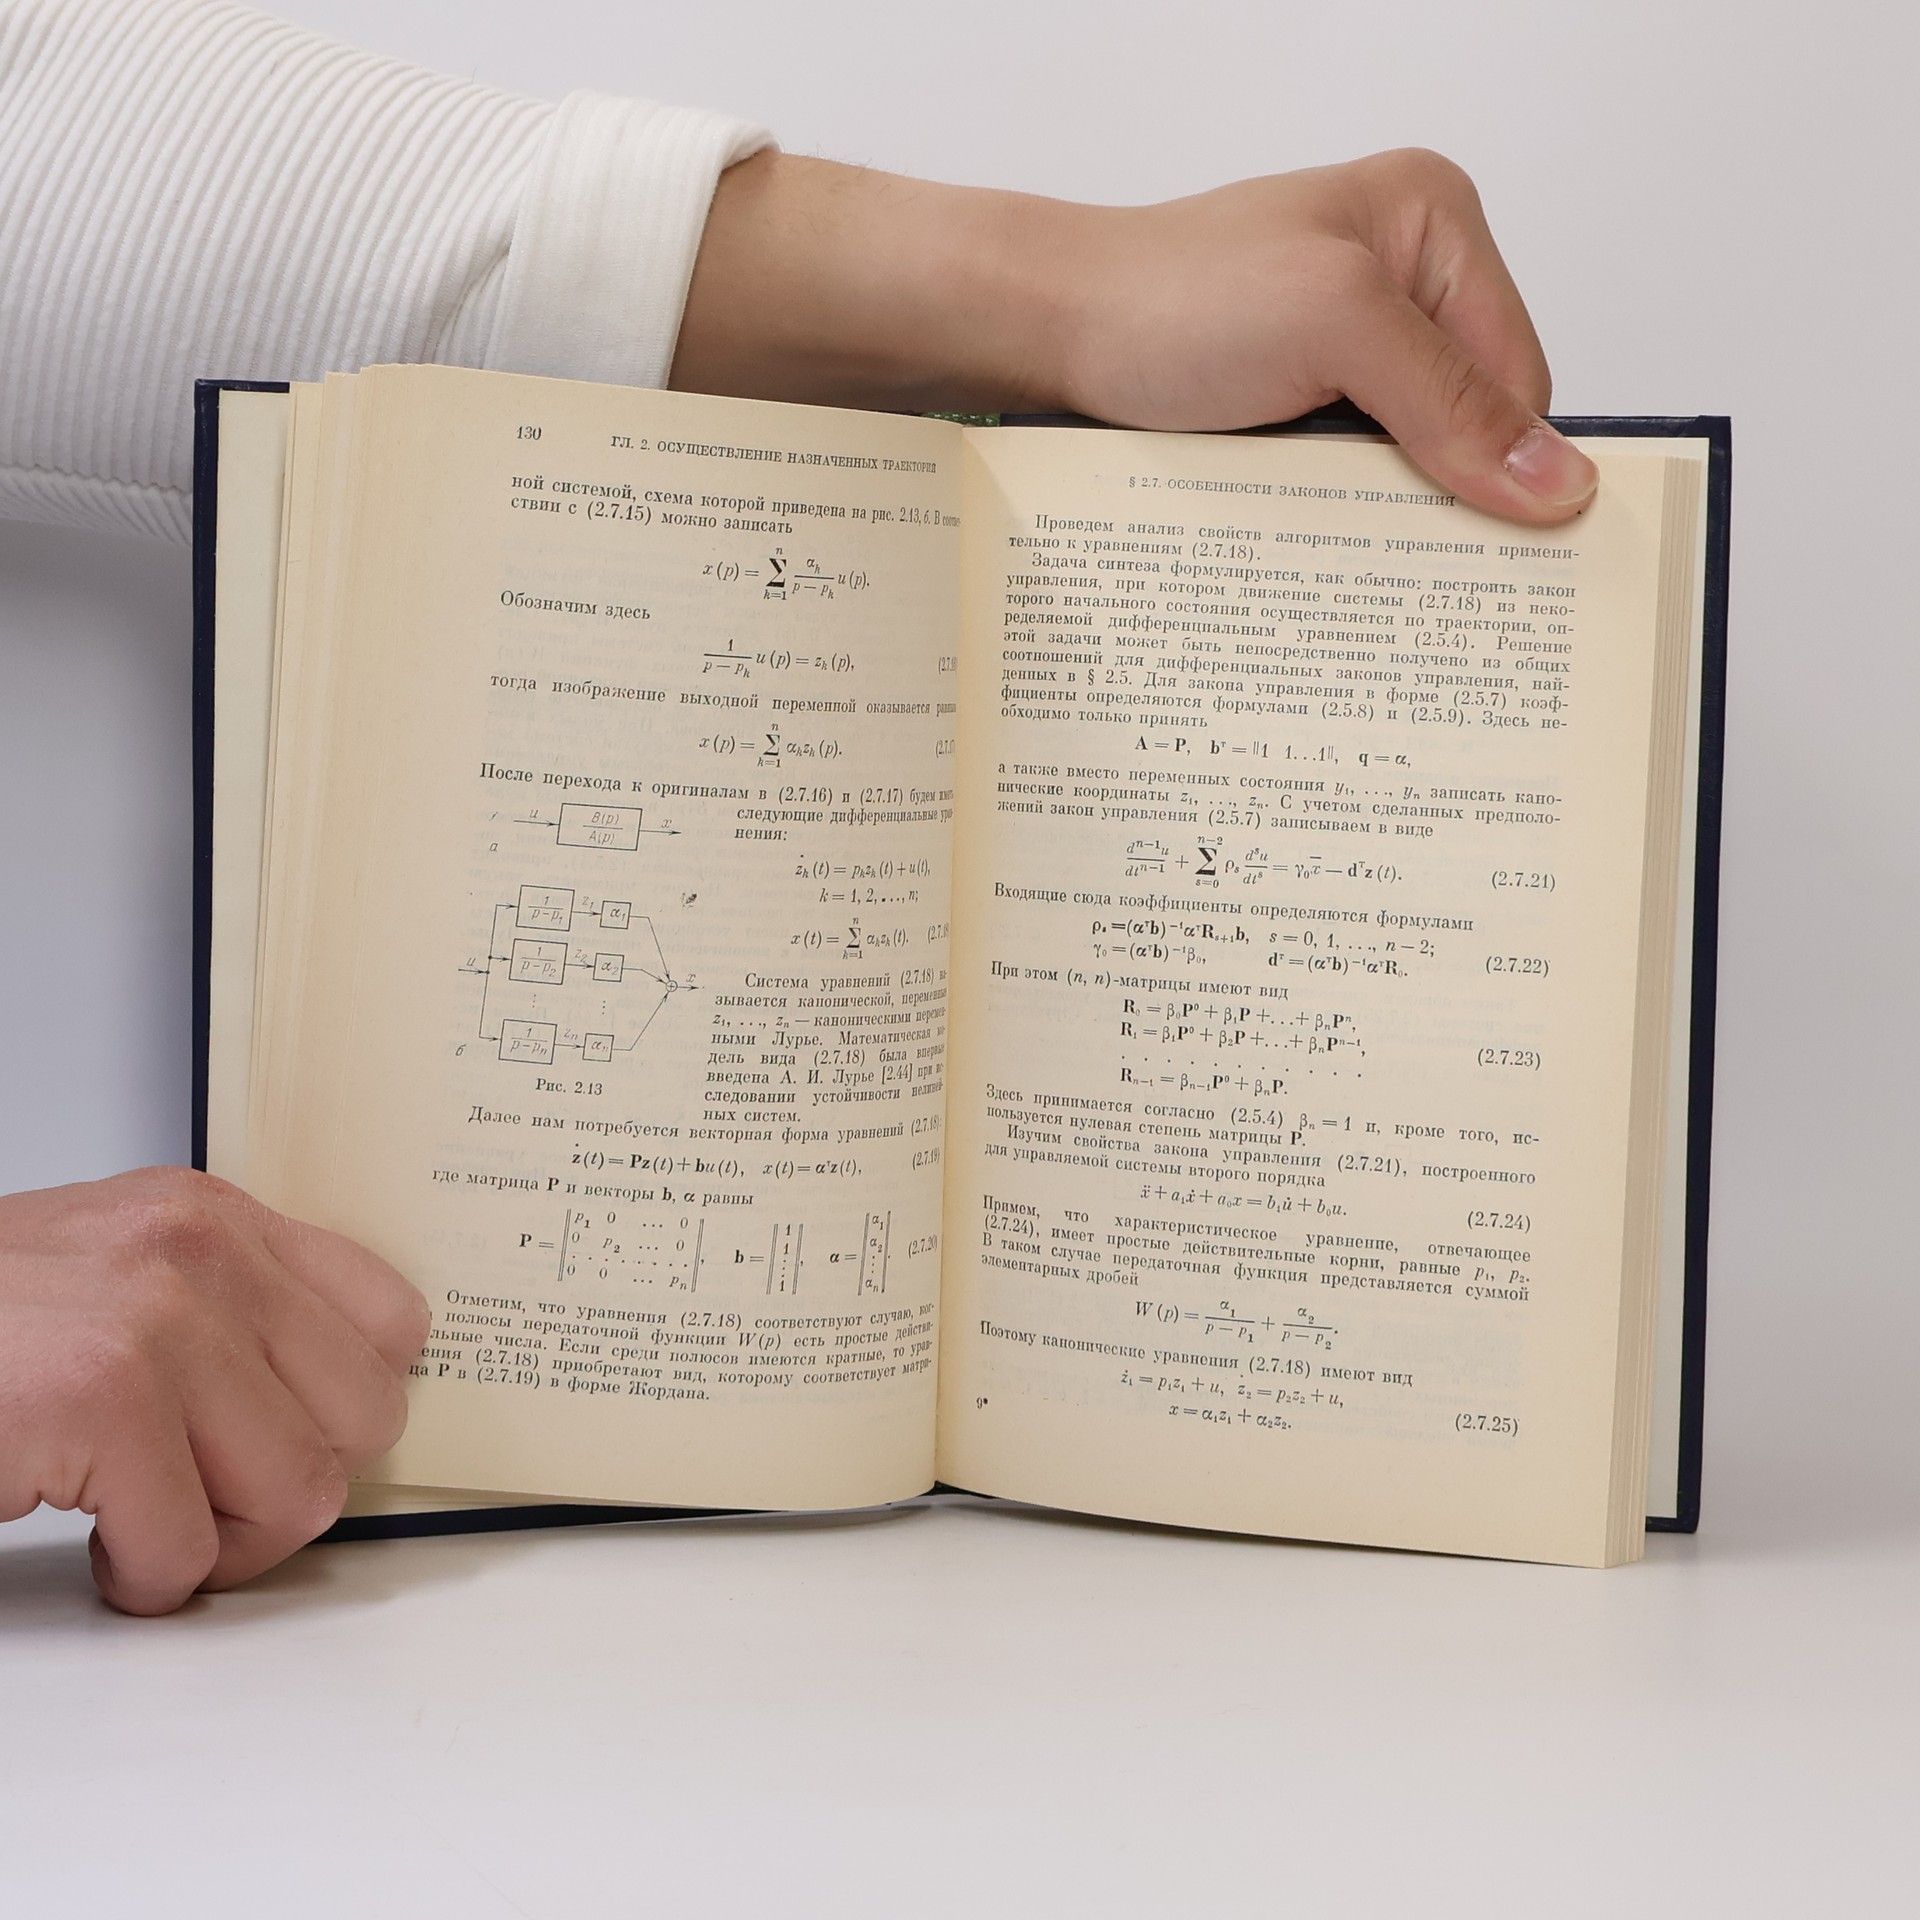 130
ГЛ. 2. ОСУЩЕСТВЛЕНИЕ НАЗНАЧЕННЫХ ТРАЕКТОРИЙ
ной системой, схема которой приведена на рис. 2.13, б. В соответ-
ствии с (2.7.15) можно записать
x (p) = ∑ₖ₌₁ⁿ αₖ/(p − pₖ) u (p).
Обозначим здесь
1/(p − pₖ) u (p) = zₖ (p),
тогда изображение выходной переменной оказывается
x (p) = ∑ₖ₌₁ⁿ αₖzₖ (p).
После перехода к оригиналам в (2.7.16) и (2.7.17) будем иметь
следующие дифференциальные урав-
нения:
u B(p)/A(p) x
а
żₖ (t) = pₖzₖ (t) + u (t),
k = 1, 2, ..., n;
x (t) = ∑ₖ₌₁ⁿ αₖzₖ (t). (2.7.18)
u
1/(p−p₁) z₁ α₁
1/(p−p₂) z₂ α₂
x
1/(p−pₙ) zₙ αₙ
б
Рис. 2.13
Система уравнений (2.7.18) на-
зывается канонической, переменные
z₁, ..., zₙ — каноническими перемен-
ными Лурье. Математическая мо-
дель вида (2.7.18) была впервые
введена А. И. Лурье [2.44] при ис-
следовании устойчивости нелиней-
ных систем.
Далее нам потребуется векторная форма уравнений (2.7.18):
ż (t) = Pz (t) + bu (t), x (t) = αᵀz (t), (2.7.19)
где матрица P и векторы b, α равны
P = ‖p₁ 0 ... 0‖, b = ‖1‖, α = ‖α₁‖. (2.7.20)
‖0 p₂ ... 0‖ ‖1‖ ‖α₂‖
‖. . . . . . .‖ ‖⋮‖ ‖⋮‖
‖0 0 ... pₙ‖ ‖1‖ ‖αₙ‖
Отметим, что уравнения (2.7.18) соответствуют случаю, ког-
полюсы передаточной функции W (p) есть простые действи-
льные числа. Если среди полюсов имеются кратные, то урав-
ения (2.7.18) приобретают вид, которому соответствует матри-
ца P в (2.7.19) в форме Жордана.
§ 2.7. ОСОБЕННОСТИ ЗАКОНОВ УПРАВЛЕНИЯ
Проведем анализ свойств алгоритмов управления примени-
тельно к уравнениям (2.7.18).
Задача синтеза формулируется, как обычно: построить закон
управления, при котором движение системы (2.7.18) из неко-
торого начального состояния осуществляется по траектории, оп-
ределяемой дифференциальным уравнением (2.5.4). Решение
этой задачи может быть непосредственно получено из общих
соотношений для дифференциальных законов управления, най-
денных в § 2.5. Для закона управления в форме (2.5.7) коэф-
фициенты определяются формулами (2.5.8) и (2.5.9). Здесь не-
обходимо только принять
A = P, bᵀ = ‖1 1...1‖, q = α,
а также вместо переменных состояния y₁, ..., yₙ записать кано-
нические координаты z₁, ..., zₙ. С учетом сделанных предполо-
жений закон управления (2.5.7) записываем в виде
dⁿ⁻¹u/dtⁿ⁻¹ + ∑ₛ₌₀ⁿ⁻² ρₛ dˢu/dtˢ = γ₀x̄ − dᵀz (t). (2.7.21)
Входящие сюда коэффициенты определяются формулами
ρₛ = (αᵀb)⁻¹αᵀRₛ₊₁b, s = 0, 1, ..., n − 2;
γ₀ = (αᵀb)⁻¹β₀, dᵀ = (αᵀb)⁻¹αᵀR₀. (2.7.22)
При этом (n, n)-матрицы имеют вид
R₀ = β₀P⁰ + β₁P + ... + βₙPⁿ,
R₁ = β₁P⁰ + β₂P + ... + βₙPⁿ⁻¹, (2.7.23)
. . . . . . . .
Rₙ₋₁ = βₙ₋₁P⁰ + βₙP.
Здесь принимается согласно (2.5.4) βₙ = 1 и, кроме того, ис-
пользуется нулевая степень матрицы P.
Изучим свойства закона управления (2.7.21), построенного
для управляемой системы второго порядка
ẍ + a₁ẋ + a₀x = b₁u̇ + b₀u. (2.7.24)
Примем, что характеристическое уравнение, отвечающее
(2.7.24), имеет простые действительные корни, равные p₁, p₂.
В таком случае передаточная функция представляется суммой
элементарных дробей
W (p) = α₁/(p − p₁) + α₂/(p − p₂).
Поэтому канонические уравнения (2.7.18) имеют вид
ż₁ = p₁z₁ + u, ż₂ = p₂z₂ + u,
x = α₁z₁ + α₂z₂. (2.7.25)
9*